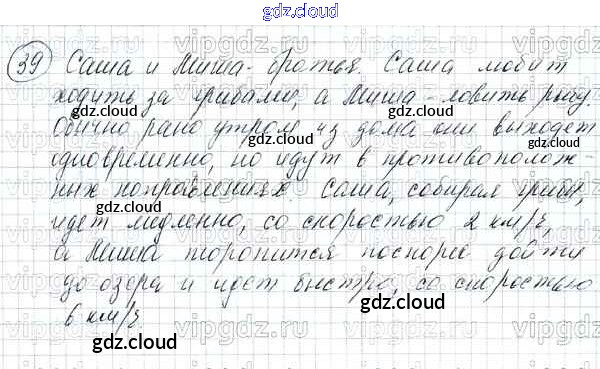 gdz.cloud
39 Саша и Миша - братья. Саша любит
ходить за грибами, а Миша - ловить рыбу.
Обычно рано утром из дома они выходет
одновременно, но идут в противополож-
ных направлениях. Саша, собирая грибы,
идет медленно, со скоростью 2 км/ч,
а Миша торопится поскорее дойти
до озера и идет быстро, со скоростью
6 км/ч
gdz.cloud
gdz.cloud
gdz.cloud
gdz.cloud
gdz.cloud
gdz.cloud
gdz.cloud
vipgdz.ru